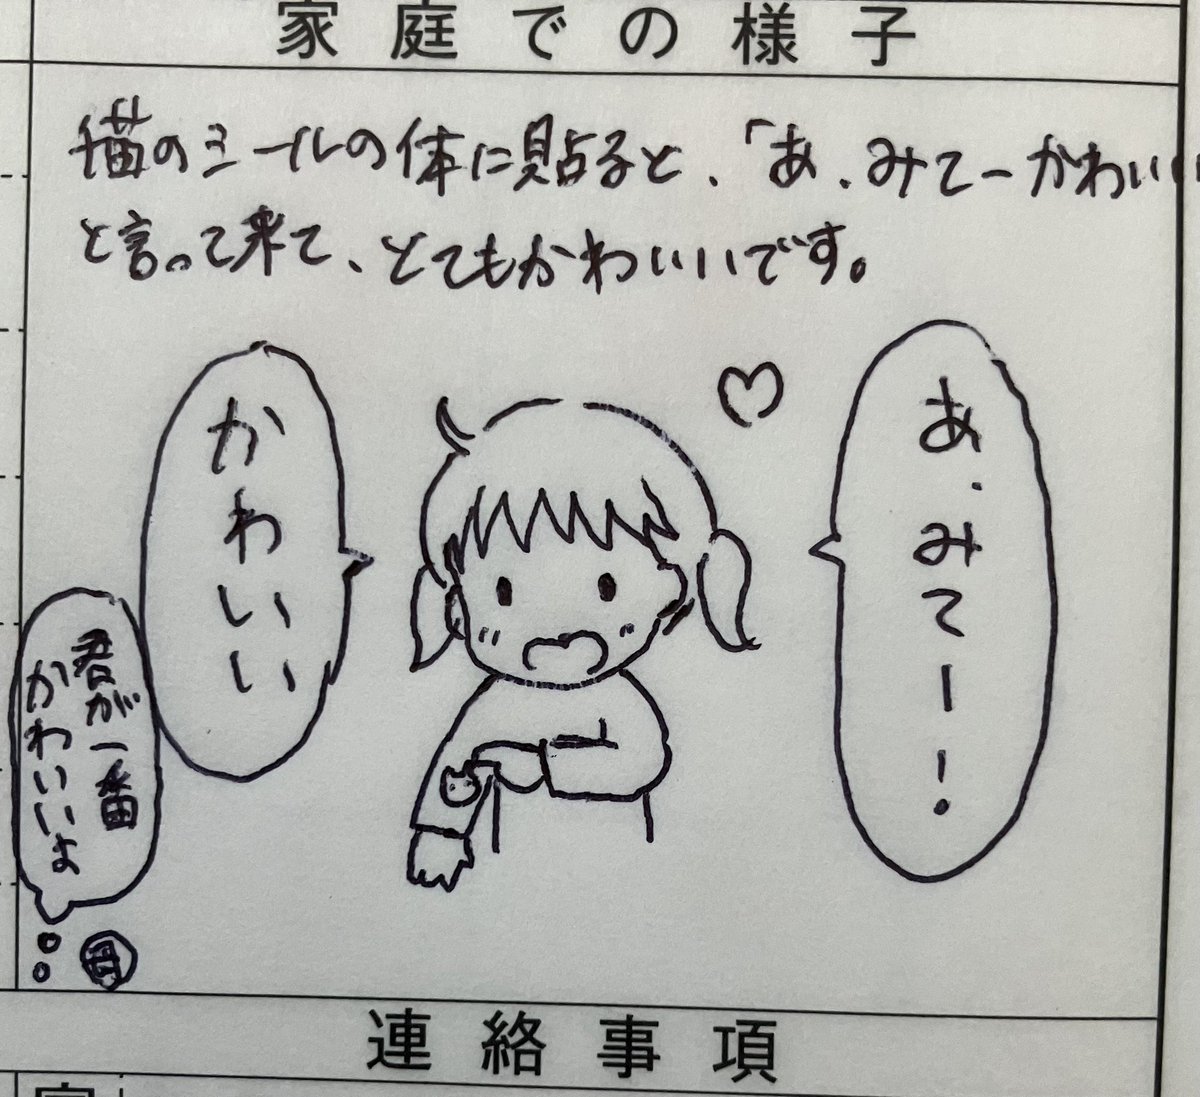 家庭での様子
猫のシールの体に貼ると、「あ、みてーかわいい
と言って来て、とてもかわいいです。
あ、みてー!
かわいい
君が一番
かわいいよ
母
連絡事項